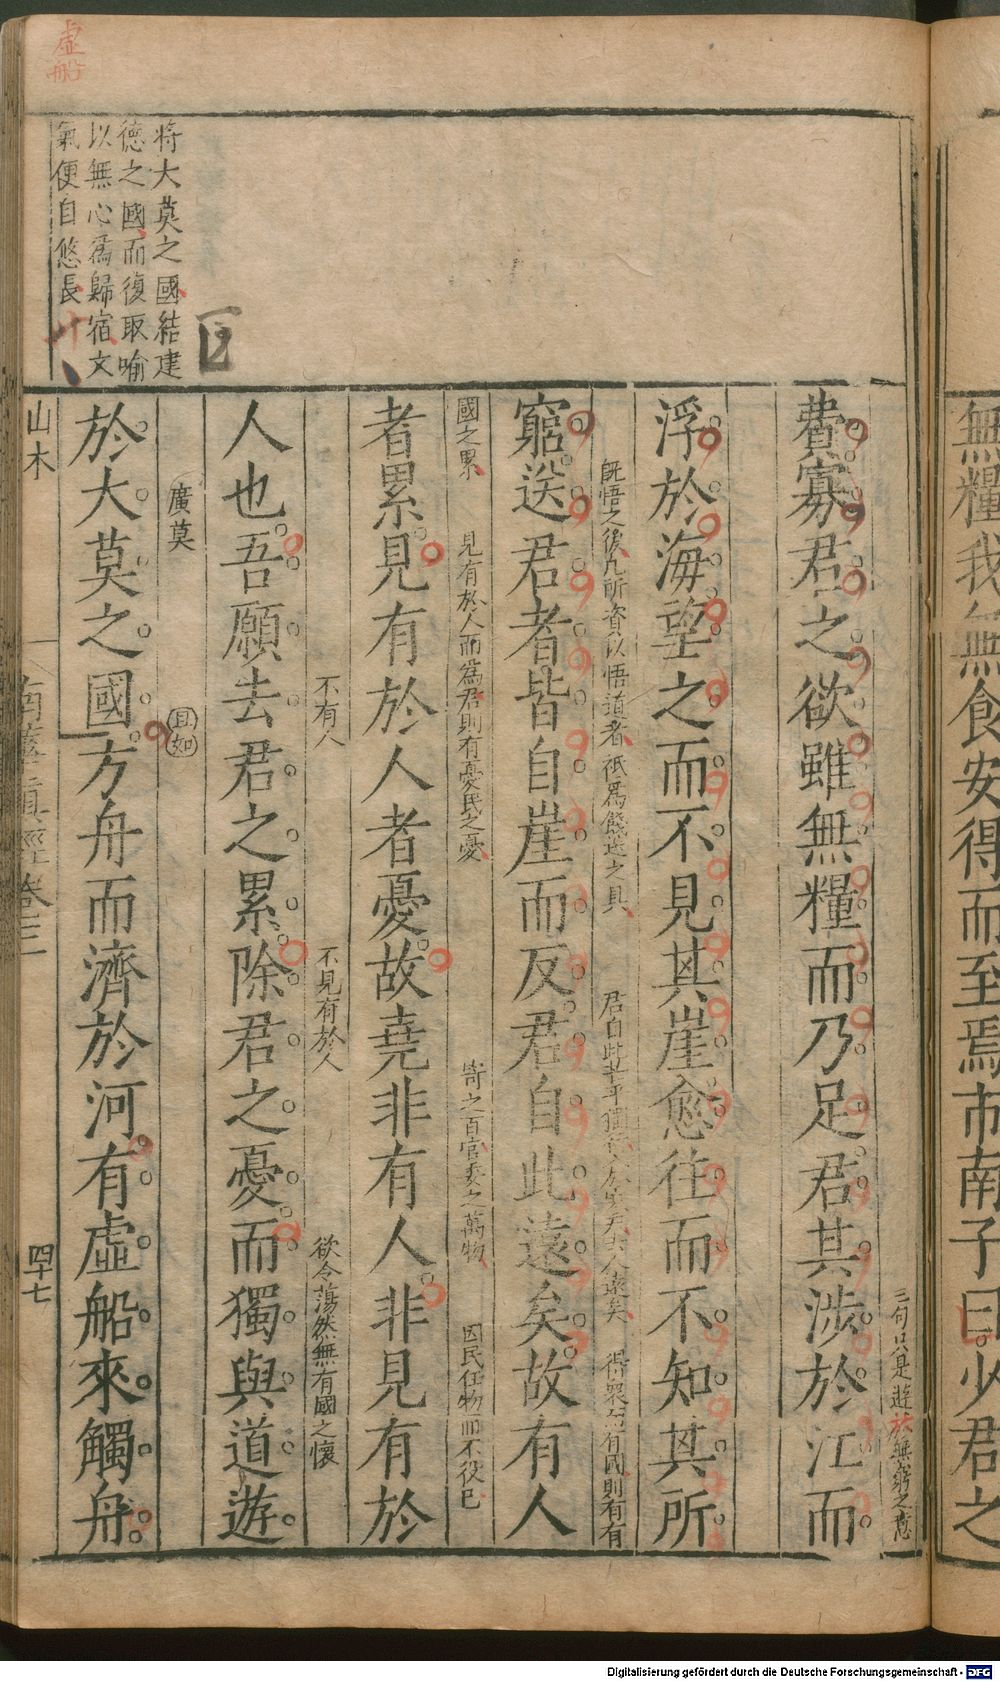 無糧我無食安得而至焉市南子曰少君之
三句只是遊於無窮之意
費寡君之欲雖無糧而乃足君其涉於江而
浮於海望之而不見其崖愈往而不知其所
既悟之後凡所資以悟道者祇爲餞送之具
君自此
遠矣
得衆而有國則有有
窮送君者皆自崖而反君自此遠矣故有人
國之累
見有於人而爲君則有憂民之憂
寄之百官委之萬物
因民任物而不役己
者累見有於人者憂故堯非有人非見有於
不有人
不見有於人
欲令蕩然無有國之懷
人也吾願去君之累除君之憂而獨與道遊
廣莫
且如
於大莫之國方舟而濟於河有虛船來觸舟
將大莫之國結建
德之國而復取喻
以無心爲歸宿文
氣便自悠長
虛船
山木
南華眞經卷三
四十七
Digitalisierung gefördert durch die Deutsche Forschungsgemeinschaft - DFG